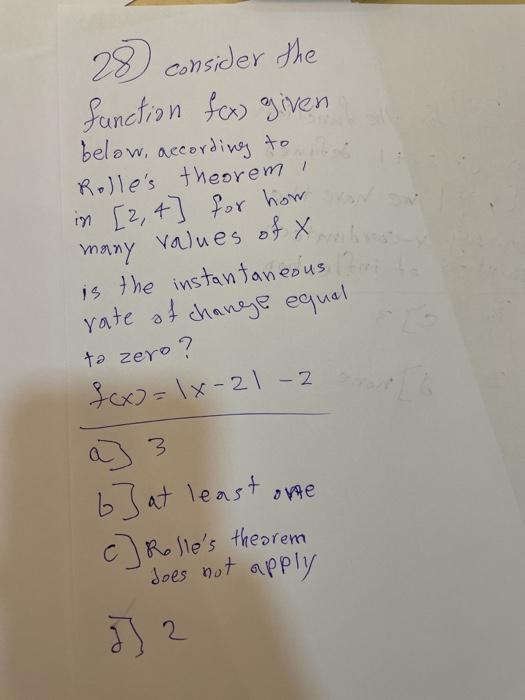 28) consider the
function f(x) given
below, according to
Rolle's theorem,
in [2,4] for how
many values of X
is the instantaneous
rate of change equal
to zero?
f(x) = |x-2| -2
a] 3
b] at least one
c] Rolle's theorem
does not apply
d] 2